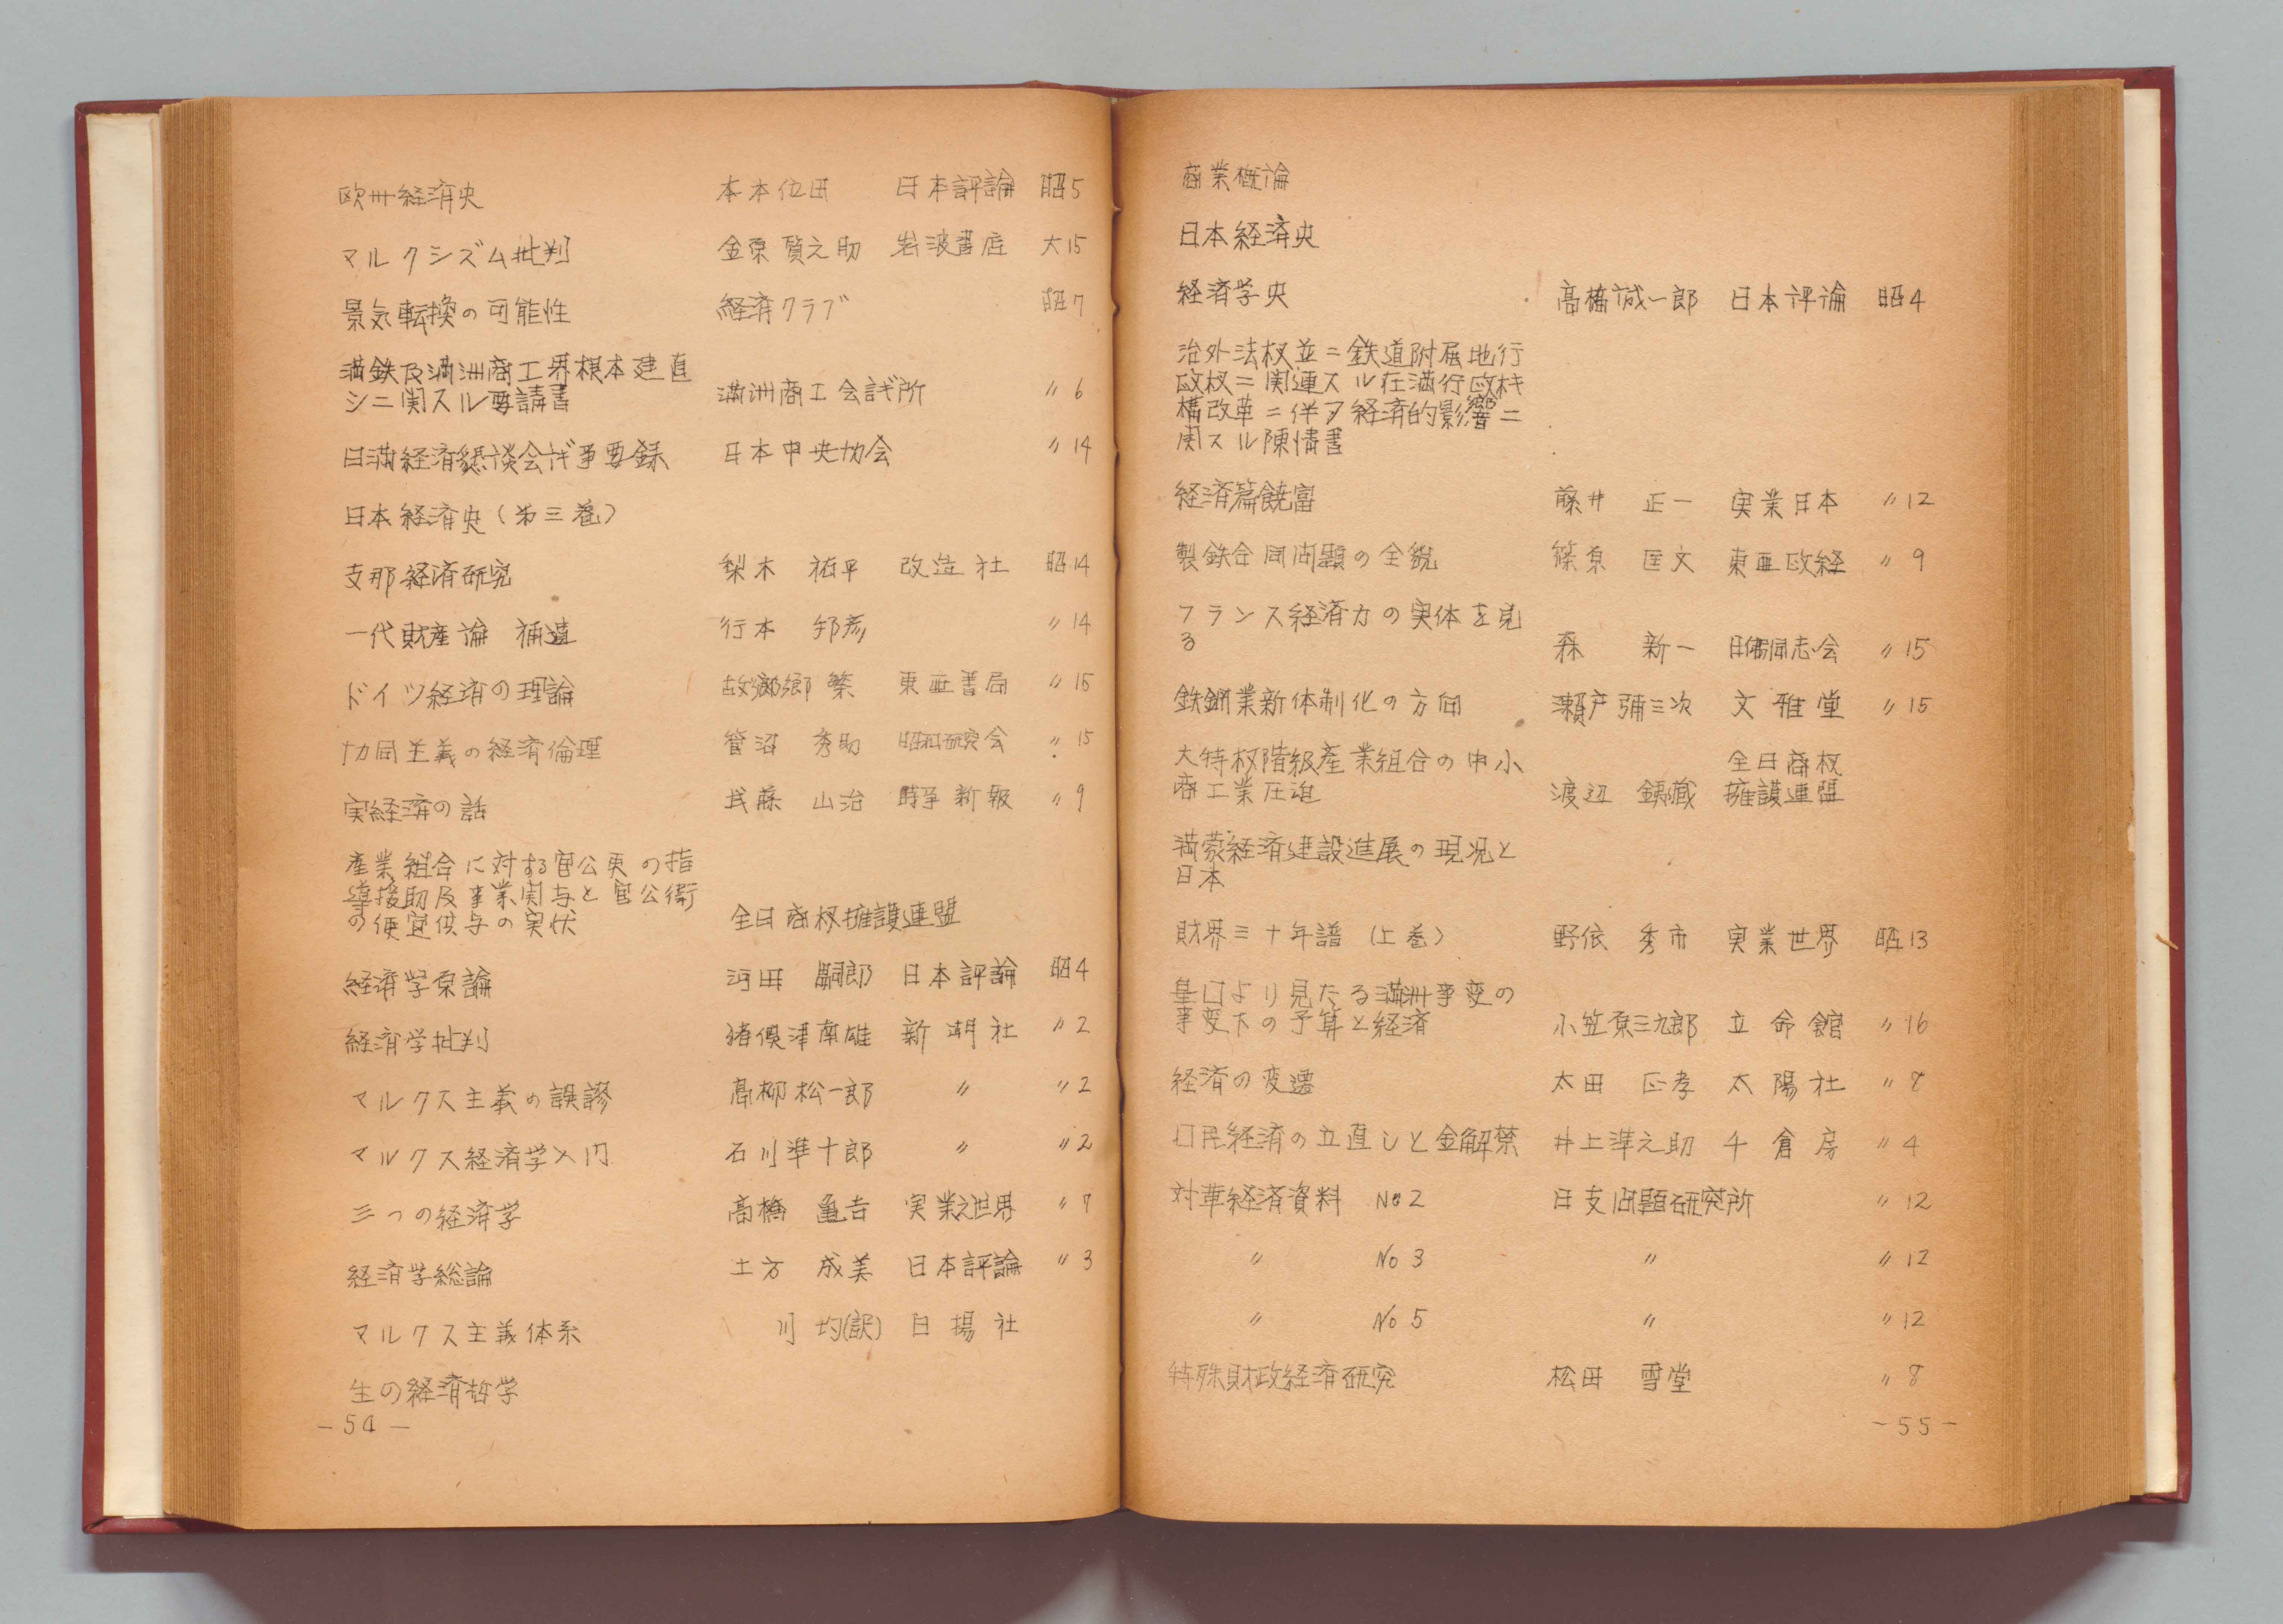 欧州経済史 本本位田 日本評論 昭5
マルクシズム批判 金原賢之助 岩波書店 大15
景気転換の可能性 経済クラブ 昭7
満鉄及満洲商工界根本建直
シニ関スル要請書 満洲商工会議所 〃6
日満経済懇談会議事要録 日本中央協会 〃14
日本経済史(第三巻)
支那経済研究 梨木祐平 改造社 昭14
一代財産論 補遺 行本邦彦 〃14
ドイツ経済の理論 故郷郷繁 東亜書局 〃15
協同主義の経済倫理 管沼秀助 昭和研究会 〃15
実経済の話 武藤山治 時事新報 〃9
産業組合に対する官公吏の指
導援助及事業関与と官公衙
の便宜供与の実状 全日商权擁護連盟
経済学原論 河田嗣郎 日本評論 昭4
経済学批判 猪俣津南雄 新潮社 〃2
マルクス主義の誤謬 高柳松一郎 〃 〃2
マルクス経済学入門 石川準十郎 〃 〃2
三つの経済学 高橋亀吉 実業之世界 〃
経済学総論 土方成美 日本評論 〃3
マルクス主義体系 川均(訳) 白揚社
生の経済哲学
-54-
商業概論
日本経済史
経済学史 高橋誠一郎 日本評論 昭4
治外法权並ニ鉄道附属地行
政权ニ関連スル在満行政机
構改革ニ伴フ経済的影響ニ
関スル陳情書
経済篇饒富 藤井正一 実業日本 〃12
製鉄合同問題の全貌 篠原匡文 東亜政経 〃9
フランス経済力の実体を見
る 森新一 日佛同志会 〃15
鉄鋼業新体制化の方向 瀬戸彌三次 文雅堂 〃15
大特权階級産業組合の中小 全日商权
商工業圧迫 渡辺銕蔵 擁護連盟
満蒙経済建設進展の現況と
日本
財界三十年譜(上巻) 野依秀市 実業世界 昭13
星口より見たる満洲事変の
事変下の予算と経済 小笠原三九郎 立命館 〃16
経済の変遷 太田正孝 太陽社 〃8
口民経済の立直しと金解禁 井上準之助 千倉房 〃4
対華経済資料 No2 日支問題研究所 〃12
〃 No3 〃 〃12
〃 No5 〃 〃12
特殊財政経済研究 松田雪堂 〃8
-55-